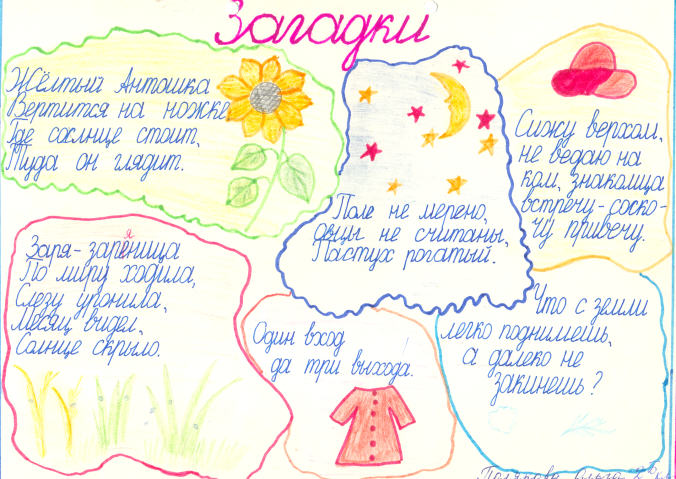 Загадки
Жёлтый Антошка
Вертится на ножке
Где солнце стоит,
Туда он глядит.
Поле не мерено,
овцы не считаны,
Пастух рогатый.
Сижу верхом,
не ведаю на
ком, знакомца
встречу-соско-
чу привечу.
Заря-заряница
По миру ходила,
Слезу уронила,
Месяц видел,
Солнце скрыло.
Один вход
да три выхода.
Что с земли
легко поднимешь,
а далеко не
закинешь?
Ольга